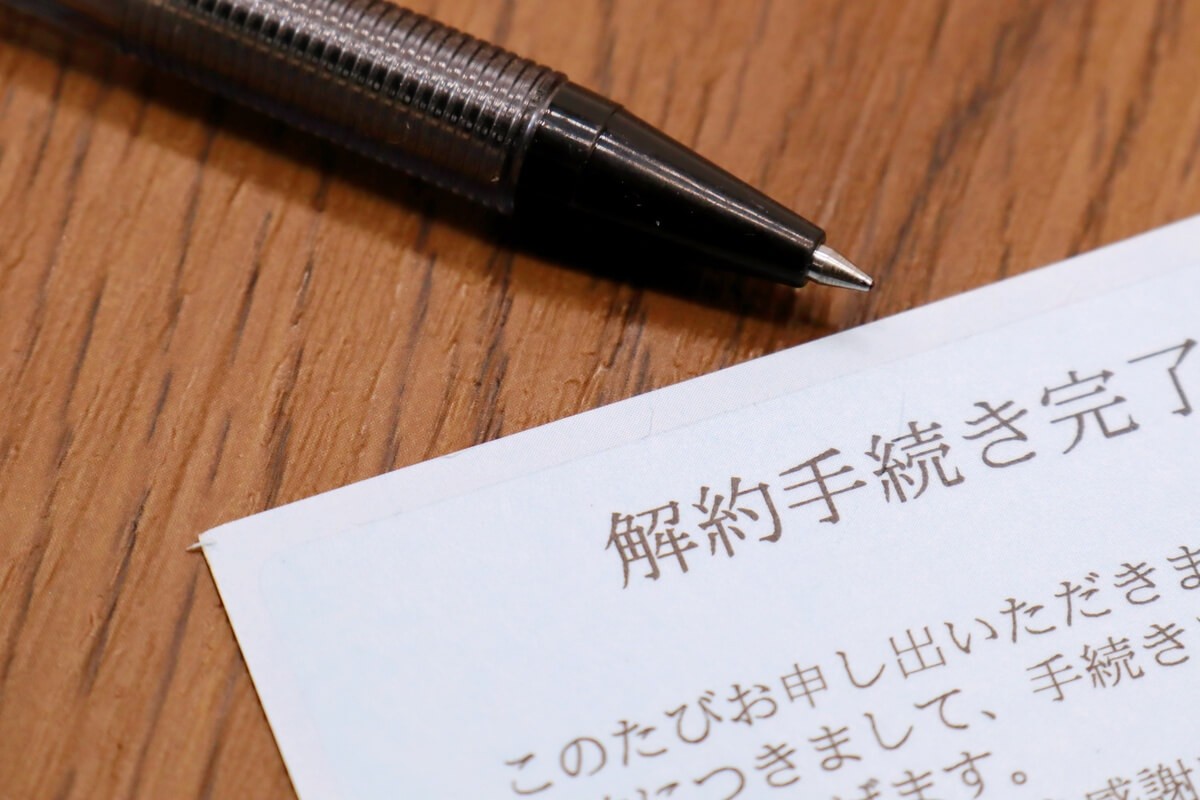 解約手続き完了
このたびお申し出いただきま
につきまして、手続き
げます。
感謝